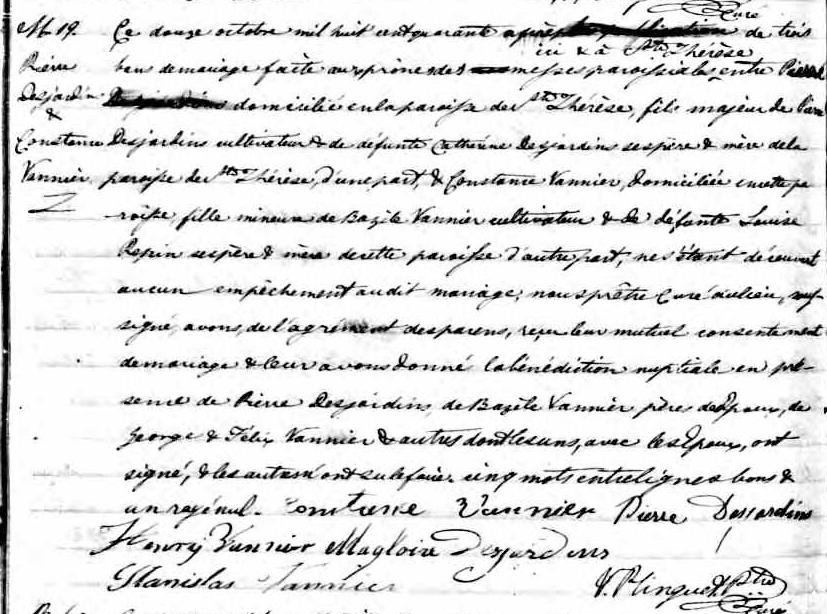 Curé
M 19. Ce douze octobre mil huit cent quarante après publication de trois
ici & à Ste Thérèse
Pierre bans de mariage faite aux prônes des messes paroissiales entre Pierre
Desjardins domicilié en la paroisse de Ste Thérèse, fils majeur de Pierre
&
Constance Desjardins cultivateur & de défunte Catherine Desjardins ses père & mère de la
Vannier paroisse de Ste Thérèse, d'une part, & Constance Vannier, domiciliée en cette pa
roisse, fille mineure de Bazile Vannier cultivateur & de défunte Louise
Pepin ses père & mère de cette paroisse d'autre part, ne s'étant découvert
aucun empêchement audit mariage; nous prêtre Curé du lieu, sous-
signé, avons, de l'agrément des parens, reçu leur mutuel consentement
de mariage & leur avons donné la bénédiction nuptiale en pré-
sence de Pierre Desjardins, de Bazile Vannier pères des Epoux, de
George & Félix Vannier & autres dont les uns, avec les Epoux, ont
signé, & les autres n'ont su le faire. cinq mots entrelignes bons &
un rayé nul. Constance Vannier Pierre Desjardins
Henry Vannier Magloire Desjardins
Stanislas Vannier V. Plinguet Ptre
Curé